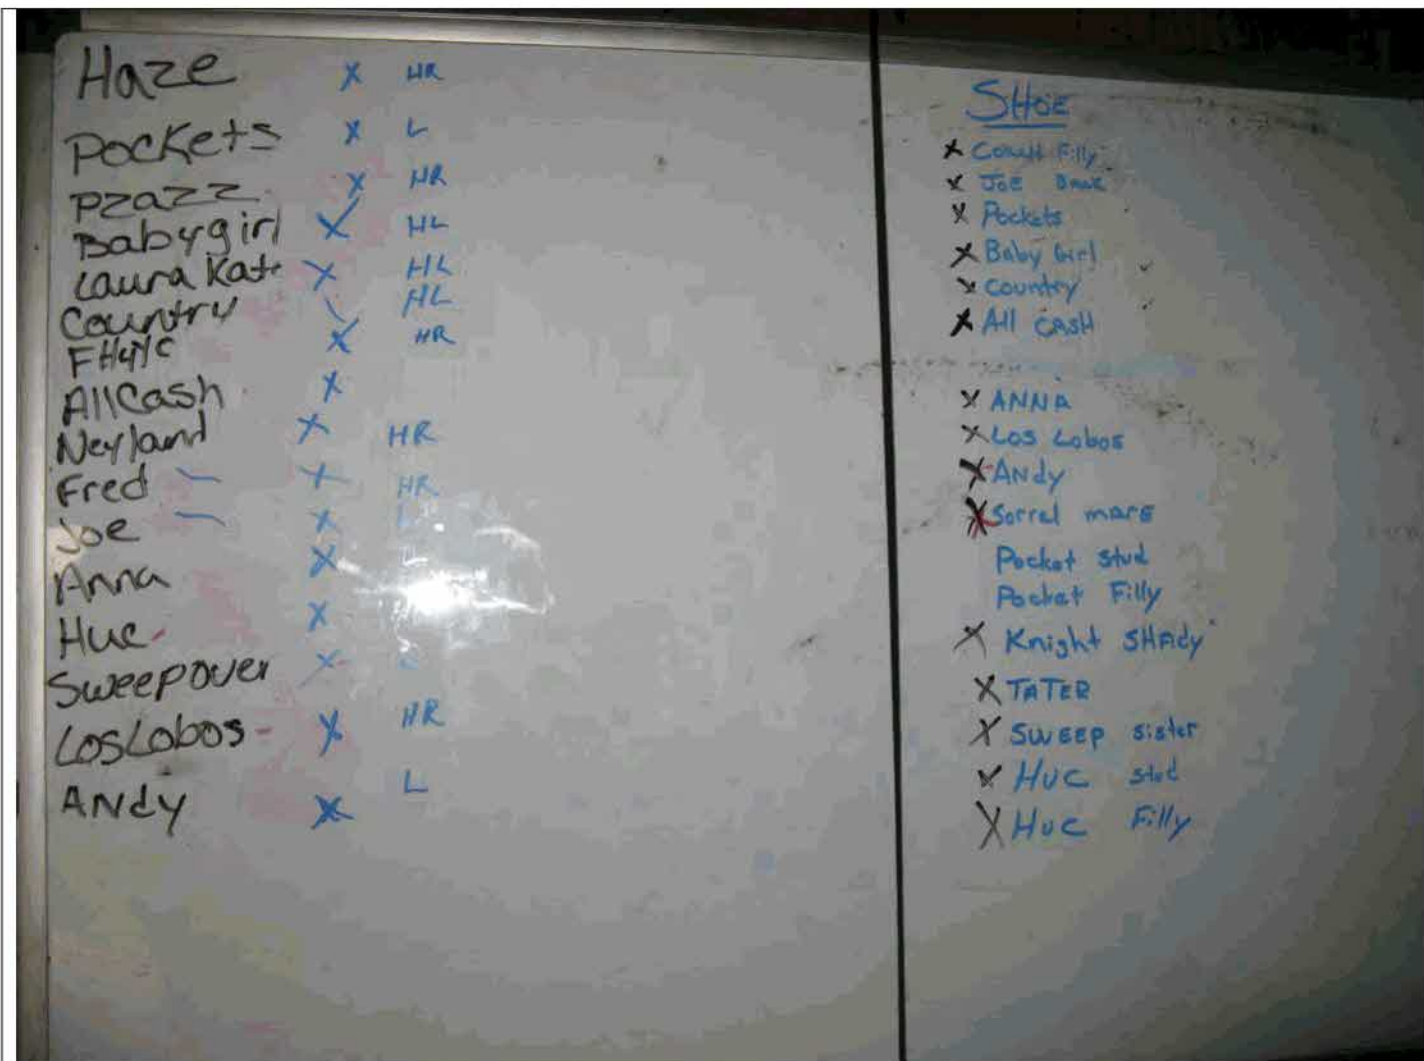 Haze X HR
Pockets X L
Pzazz X HR
Babygirl X HL
Laura Kate X HL
Country \ HL
X HR
AllCash X
Neyland X HR
Fred — X HR
Joe — X L
Anna X
Huc - X
Sweepover X L
LosLobos - X HR
ANdy X L
SHOE
X Filly
X JOE
X Pockets
X Baby Girl
X Country
X All CASH
X ANNA
X LOS Lobos
X ANdy
X Sorrel marE
Pocket stud
Pocket Filly
X Knight SHAdy
X TATER
X SWEEP sister
X HUC stud
X HUC Filly